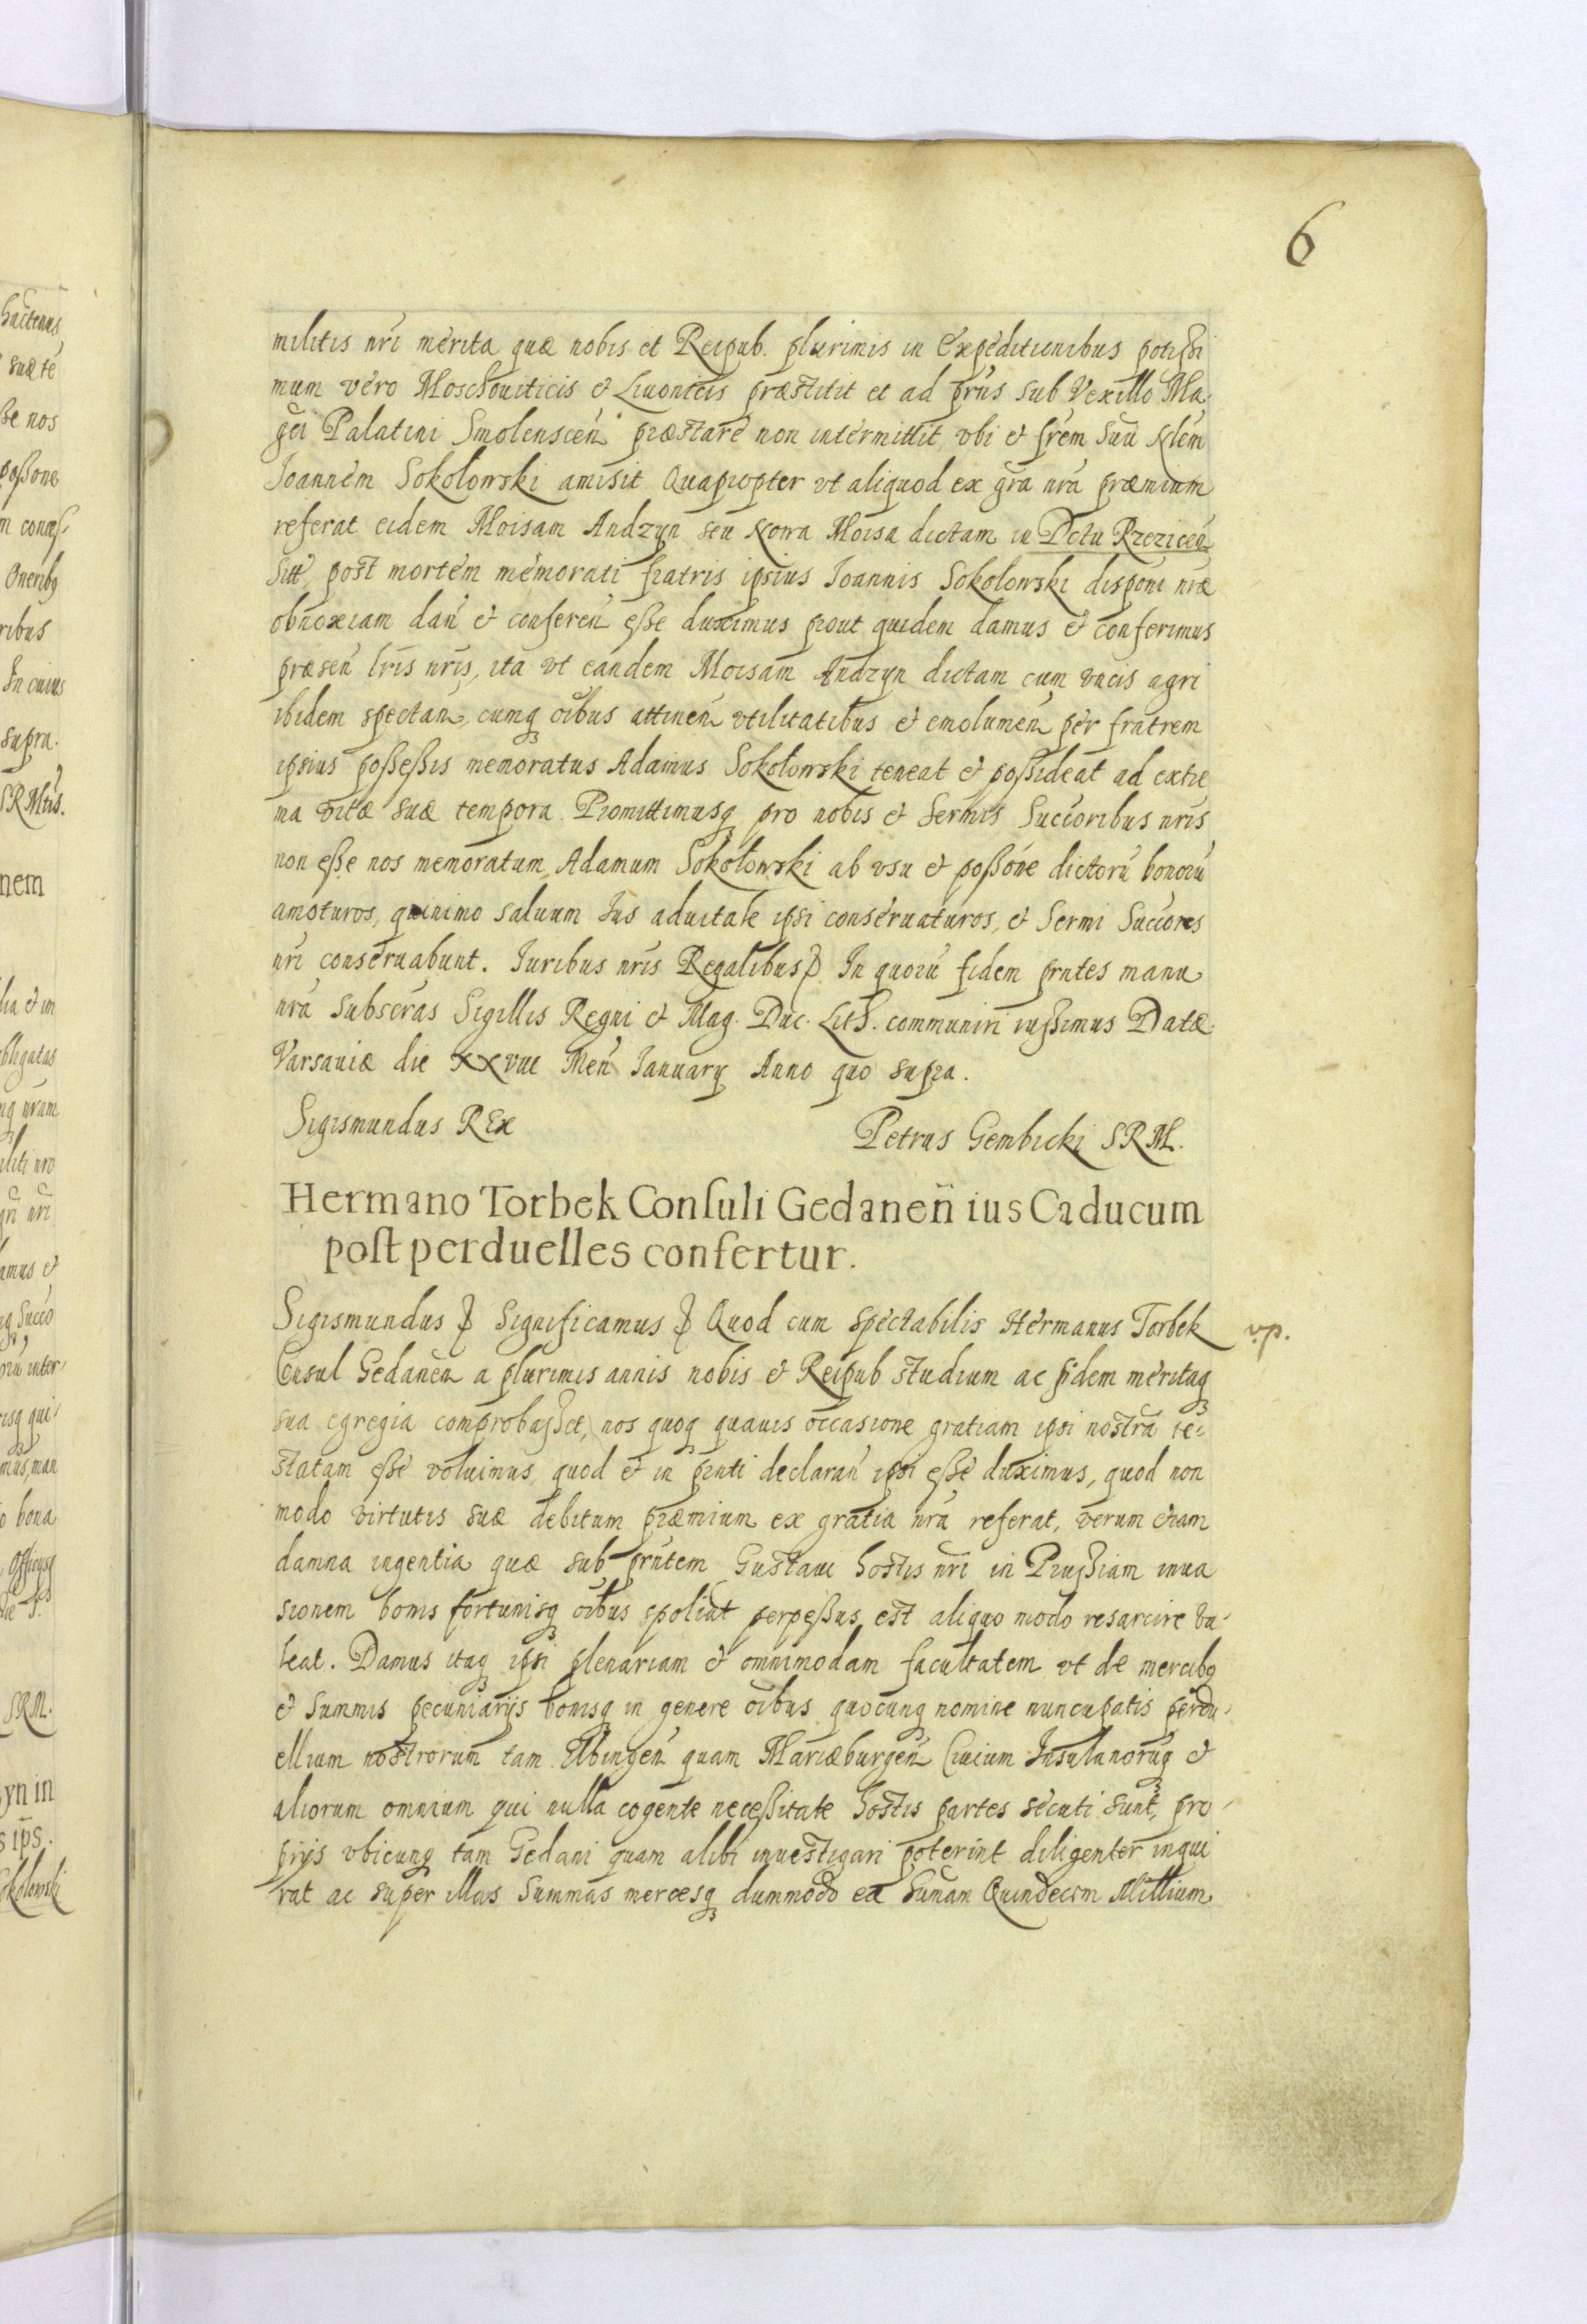 6
militis nr̃i merita quæ nobis et Reipub. plurimis in Expeditionibus potißi
mum vero Moschouiticis et Liuonicis præstitit et ad pr̃ns sub Vexillo Ma
g̃ci Palatini Smolenscen̄ præstare non intermittit, vbi et fr̃em suũ Nlẽm
Joannem Sokołowski amisit Quapropter vt aliquod ex gr̃a nr̃a præmium
referat eidem Moisam Andzyn seu Nowa Moisa dictam in Dctu Rzezicen̄
sitt, post mortem memorati fratris ipsius Joannis Sokołowski dispõni nr̃æ
obnoxiam dan̄ et conferen̄ eße duximus prout quidem damus et conferimus
præsen̄ lr̃is nr̃is, ita vt eandem Moisam Andzyn dictam cum vncis agri
ibidem spectan̄, cumq; õibus attinen̄ vtilitatibus et emolumen̄ per fratrem
ipsius poßeßis memoratus Adamus Sokołowski teneat et poßideat ad extre
ma vitæ suæ tempora. Promittimusq; pro nobis et Sermis Succ̃oribus nr̃is
non eße nos memoratum Adamum Sokołowski ab vsu et poßõne dictorũ bonorũ
amoturos, quinimo saluum Ius aduitale ipsi conseruaturos, et Sermi Succ̃ores
nr̃i conseruabunt. Iuribus nr̃is Regalibus etc. In quorũ fidem pr̃ntes manu
nr̃a subscr̃as Sigillis Regni et Mag. Duc. Lith. communiri iußimus Datæ
Varsauiæ die xxvııı Men̄ Ianuarij Anno quo supra.
Sigismundus REx
Petrus Gembicki SRM.
Hermano Torbek Conſuli Gedanen̄ ius Caducum
poſt perduelles confertur.
Sigismundus etc Significamus etc Quod cum spectabilis Hermanus Torbek
v.p.
Consul Gedanen̄ a plurimis annis nobis et Reipub studium ac fidem meritaq;
sua egregia comprobaßet, nos quoq; quauis occasione gratiam ipsi nostrã te-
statam eße voluimus, quod et in pr̃nti declaran̄ ipsi eße duximus, quod non
modo virtutis suæ debitum præmium ex gratia nr̃a referat, verum etiam
damna ingentia quæ sub pr̃ntem Gustaui hostis nr̃i in Prußiam inua
sionem bonis fortunisq; õibus spoliat perpeßus est aliquo modo resarcire va-
leat. Damus itaq; ipsi plenariam et omnimodam facultatem vt de mercibq;
et summis pecuniarijs bonisq; in genere õibus quocunq; nomine nuncupatis perdu-
ellium nostrorum tam Elbingen̄ quam Mariæburgen̄ Ciuium Insulanorũq; et
aliorum omnium qui nulla cogente neceßitate hostis partes secuti sunt, pro-
prijs vbicunq; tam Gedani quam alibi inuestigari poterint diligenter inqui
rat ac super illas summas mercesq; dummodo ea sum̃am Quindecim Millium